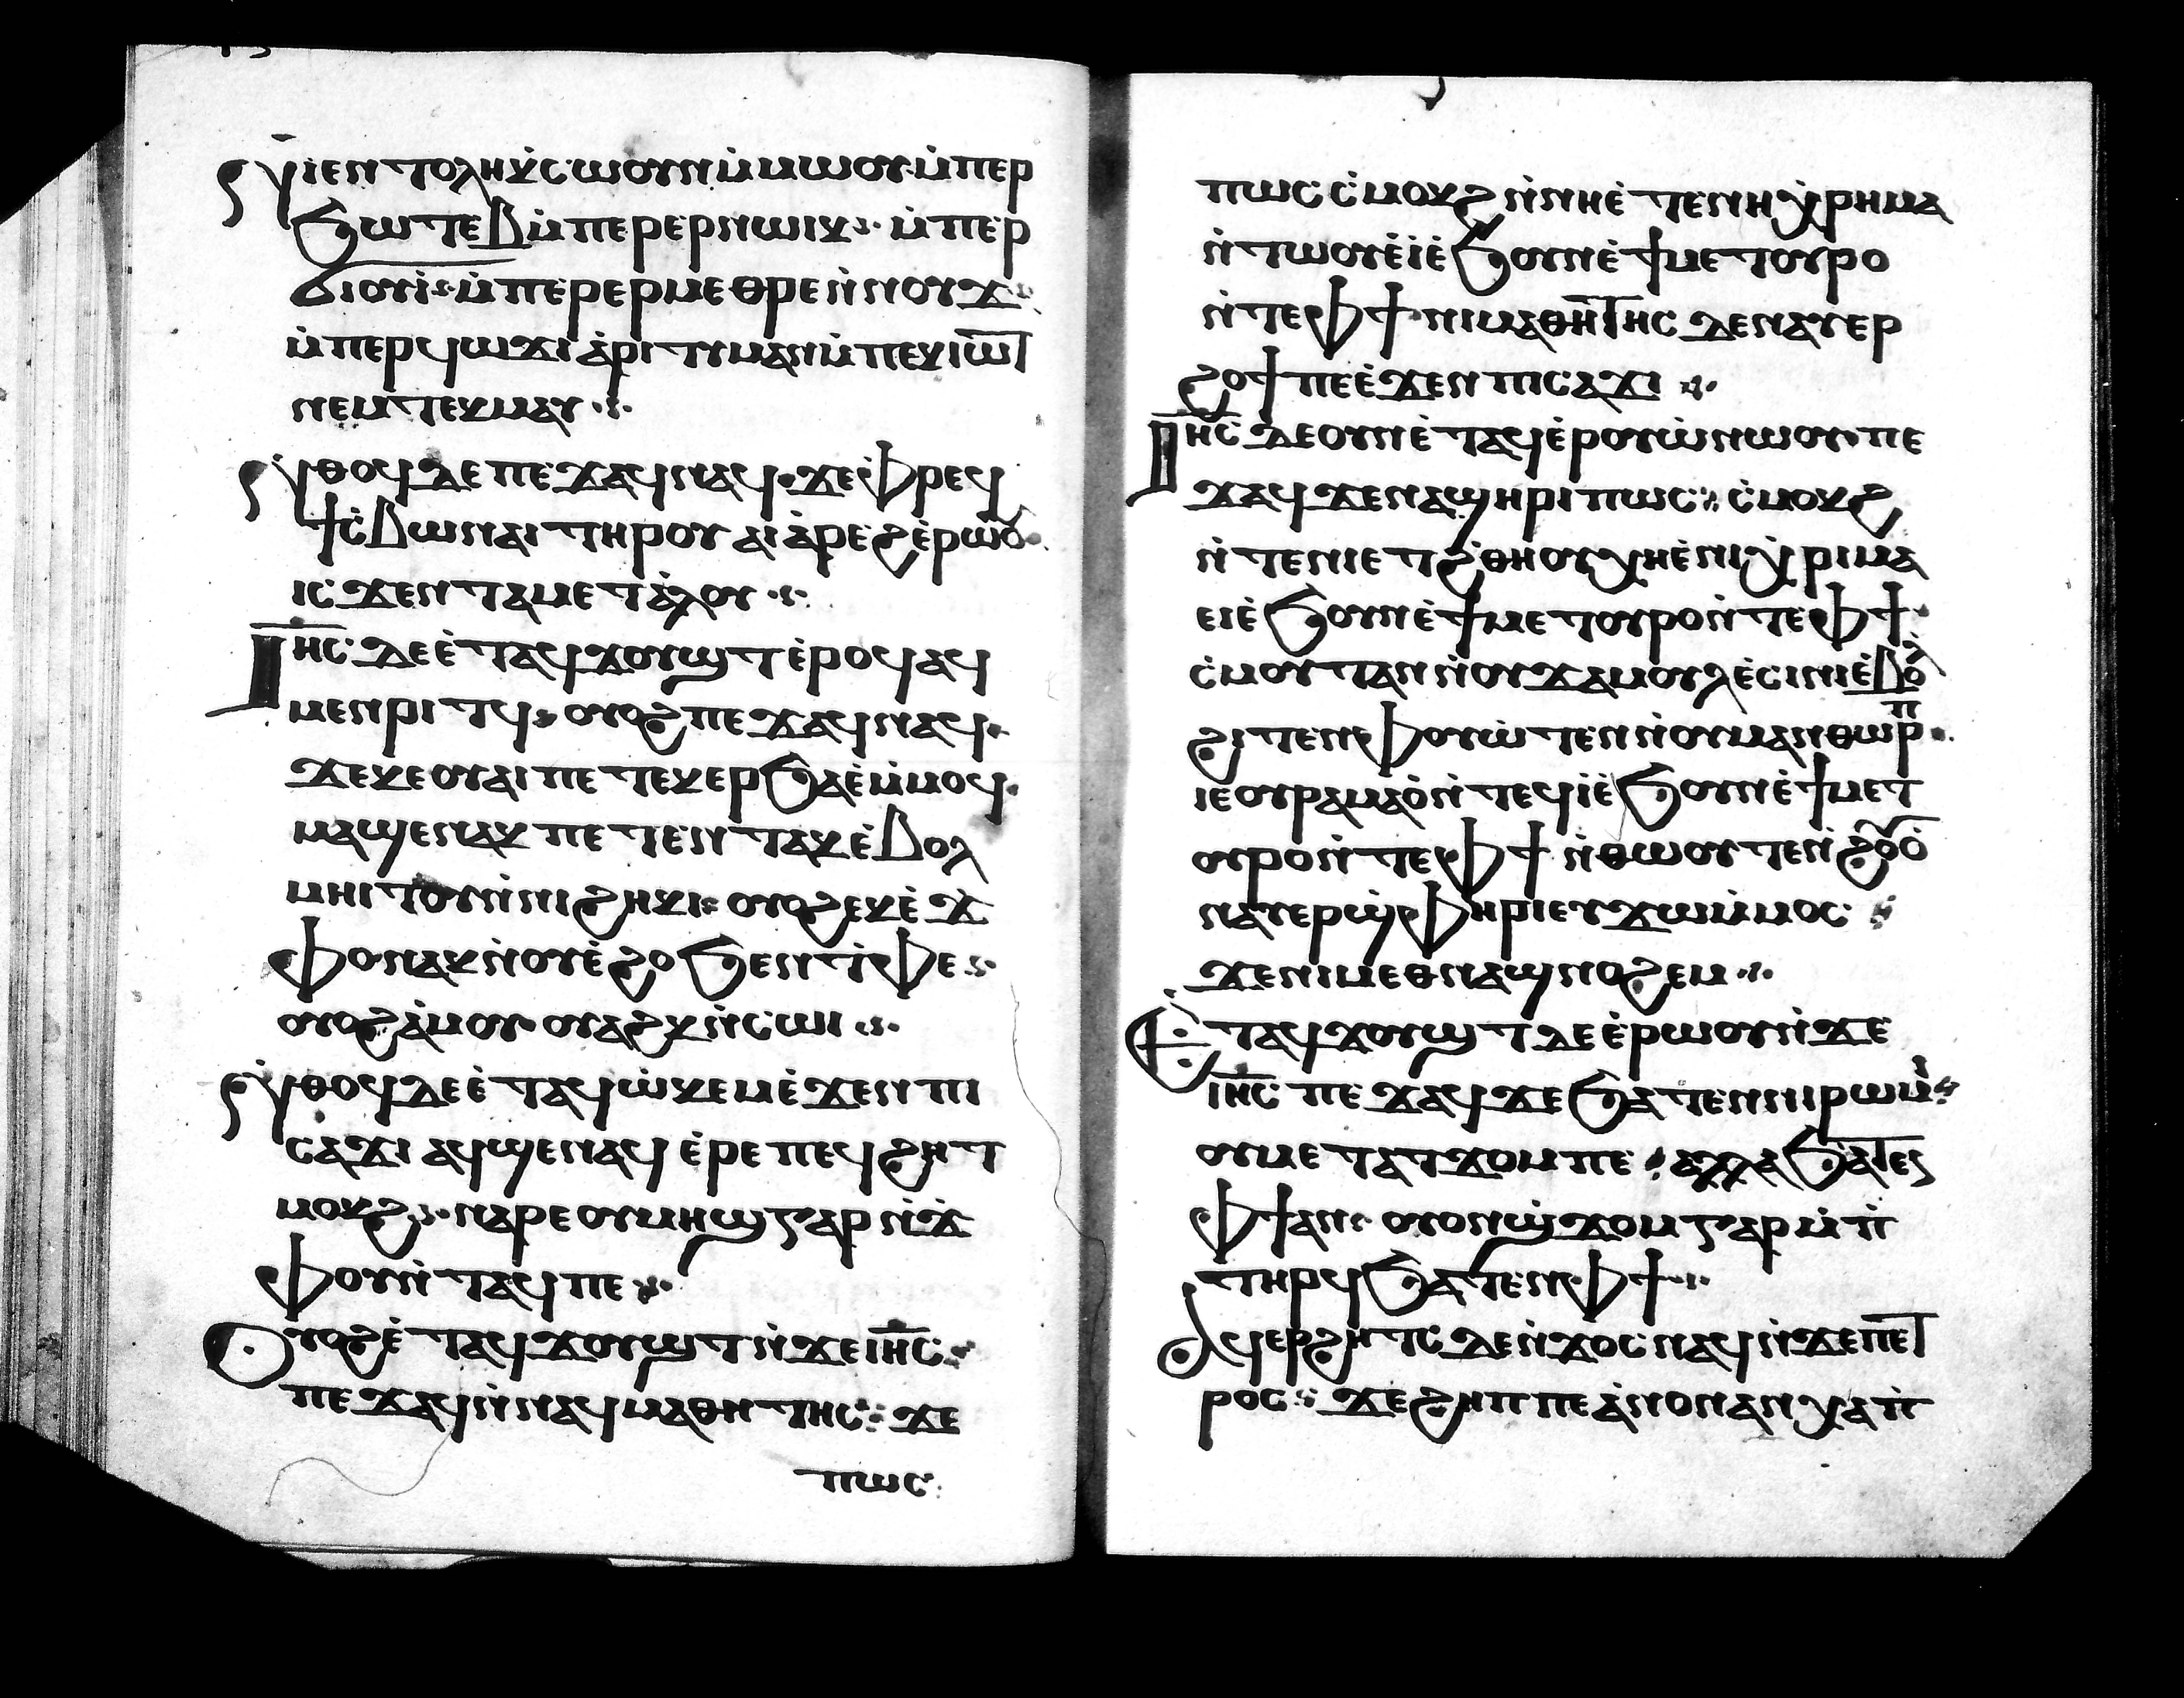 ⲛ̇ⲓⲉⲛⲧⲟⲗⲏⲕ̇ⲥⲱⲟⲩⲛⲙ̇ⲙⲱⲟⲩ·ⲙ̇ⲡⲉⲣ
ϧⲱⲧⲉⲃⲙ̇ⲡⲉⲣⲉⲣⲛⲱⲓⲕ· ⲙ̇ⲡⲉⲣ
ϭⲓⲟⲩⲓ̇·ⲙ̇ⲡⲉⲣⲉⲣⲙⲉⲑⲣⲉⲛ̇ⲛⲟⲩϫ·
ⲙ̇ⲡⲉⲣϥⲱϫⲓ ⲁ̇ⲣⲓⲧⲩⲙⲁⲛⲙ̇ⲡⲉⲕⲓⲱ̅ⲧ̅
ⲛⲉⲙⲧⲉⲕⲙⲁⲩ·
ⲛ̇ⲑⲟϥⲇⲉⲡⲉϫⲁϥⲛⲁϥ·ϫⲉⲫⲣⲉϥ
ϯⲥ̇ⲃⲱⲛⲁⲓⲧⲏⲣⲟⲩ ⲁⲓⲁ̇ⲣⲉϩⲉ̇ⲣⲱⲟⲩ·
ⲓⲥϫⲉⲛⲧⲁⲙⲉⲧⲁ̇ⲗⲟⲩ·
Ⲓⲏ̅ⲥ̅ ⲇⲉⲉ̇ⲧⲁϥϫⲟⲩϣⲧⲉ̇ⲣⲟϥⲁϥ
ⲙⲉⲛⲣⲓⲧϥ· ⲟⲩⲟϩⲡⲉϫⲁϥⲛⲁϥ·
ϫⲉⲕⲉⲟⲩⲁⲓⲡⲉⲧⲉⲕⲉⲣϧⲁⲉ̇ⲙ̇ⲙⲟϥ·
ⲙⲁϣⲉⲛⲁⲕ ⲡⲉⲧⲉⲛⲧⲁⲕⲉ̇ⲃⲟⲗ
ⲙⲏⲓⲧⲟⲩⲛ̇ⲛⲓϩⲏⲕⲓ· ⲟⲩⲟϩⲉⲕⲉ̇ϫ̇
ⲫⲟⲛⲁⲕⲛ̇ⲟⲩⲉ̇ϩⲟϧⲉⲛⲧ̇ⲫⲉ·
ⲟⲩⲟϩⲁ̇ⲙⲟⲩ ⲟⲩⲁϩⲕⲛ̇ⲥⲱⲓ·
ⲛ̇ⲑⲟϥⲇⲉⲉ̇ⲧⲁϥⲱ̇ⲕⲉⲙⲉ̇ϫⲉⲛⲡⲓ
ⲥⲁϫⲓ ⲁϥϣⲉⲛⲁϥ ⲉ̇ⲣⲉⲡⲉϥϩⲏⲧ
ⲙⲟⲕϩ·ⲛⲁⲣⲉⲟⲩⲙⲏϣⲅⲁⲣⲛ̇ϫ̇
ⲫⲟⲩⲛ̇ⲧⲁϥⲡⲉ·
Ⲟⲩⲟϩⲉ̇ⲧⲁϥϫⲟⲩϣⲧⲛ̇ϫⲉⲓⲏ̅ⲥ̅·
ⲡⲉϫⲁϥⲛ̇ⲛⲁϥⲙⲁⲑⲏⲧⲏⲥ·ϫⲉ
ⲡⲱⲥ
ⲡⲱⲥⲥ̇ⲙⲟⲕϩⲛ̇ⲛⲏⲉ̇ⲧⲉⲛⲏⲭ̇ⲣⲏⲙⲁ
ⲛ̇ⲧⲱⲟⲩⲉ̇ⲓ̇ⲉ̇ϧⲟⲩⲛⲉ̇ϯⲙⲉⲧⲟⲩⲣⲟ
ⲛ̇ⲧⲉⲫϯ·ⲛⲓⲙⲁⲑⲏⲧⲏⲥ ⲇⲉⲛⲁⲩⲉⲣ
ϩⲟϯⲡⲉⲉ̇ϫⲉⲛⲡⲓⲥⲁϫⲓ·
Ⲓⲏ̅ⲥ̅ ⲇⲉⲟⲩⲛⲉ̇ⲧⲁϥⲉ̇ⲣⲟⲩⲱ̇ⲛⲱⲟⲩ·ⲡⲉ
ϫⲁϥϫⲉⲛⲁϣⲏⲣⲓⲡⲱⲥ ⲥ̇ⲙⲟⲕϩ
ⲛ̇ⲧⲉⲛⲓⲉⲧϩ̇ⲑⲏⲟⲩⲭⲏⲉ̇ⲛⲓⲭ̇ⲣⲓⲙⲁ
ⲉⲓⲉ̇ϧⲟⲩⲛⲉ̇ϯⲙⲉⲧⲟⲩⲣⲟⲛ̇ⲧⲉⲫϯ·
ⲥ̇ⲙⲟⲩⲧⲁⲛⲛ̇ⲟⲩϫⲁⲙⲟⲩⲗⲉ̇ⲥⲓⲛⲓⲉ̇ⲃⲟⲗ
ϩⲓⲧⲉⲛⲫⲟⲩⲱ̇ⲧⲉⲛⲛ̇ⲟⲩⲙⲁⲛⲑⲱⲣⲡ·
ⲓⲉⲟⲩⲣⲁⲙⲁⲟ̇ⲛ̇ⲧⲉϥⲓ̇ⲉ̇ϧⲟⲩⲛⲉ̇ϯⲙⲉⲧ
ⲟⲩⲣⲟⲛ̇ⲧⲉⲫϯ ⲛ̇ⲑⲱⲟⲩⲧⲉⲛ̇ϩⲟⲩⲟ̇
ⲛⲁⲩⲉⲣϣ̇ⲫⲏⲣⲓⲉⲩϫⲱⲙ̇ⲙⲟⲥ·
ϫⲉⲛⲓⲙⲉⲑⲛⲁϣⲛⲟϩⲉⲙ·
Ⲉ̇ⲧⲁϥϫⲟⲩϣⲧⲇⲉⲉ̇ⲣⲱⲟⲩⲛ̇ϫⲉ
ⲓⲏ̅ⲥ̅ ⲡⲉϫⲁϥϫⲉϧⲁⲧⲉⲛⲛⲓⲣⲱⲙ̇·
ⲟⲩⲙⲉⲧⲁⲧϫⲟⲙⲡⲉ·ⲁⲗⲗⲁϧⲁⲧⲉⲛ
ⲫϯⲁⲛ· ⲟⲩⲟⲛϣ̇ϫⲟⲙⲅⲁⲣⲙ̇ⲡ̇
ⲧⲏⲣϥϧⲁⲧⲉⲛⲫϯ·
Ⲁϥⲉⲣϩⲏⲧⲥⲇⲉⲛ̇ϫⲟⲥⲛⲁϥⲛ̇ϫⲉⲡⲉⲧ
ⲣⲟⲥ·ϫⲉϩⲏⲡⲡⲉⲁ̇ⲛⲟⲛⲁⲛⲭⲁⲡ̇